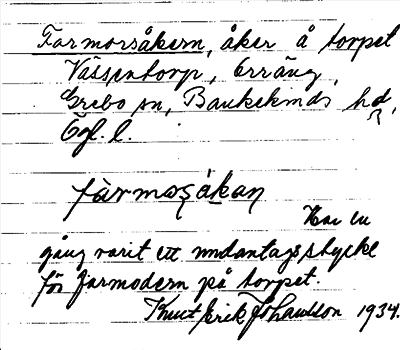 Farmorsåkern, åker å torpet
Vässentorp, Erräng,
Grebo sn, Bankekinds hd,
Ögl. l.
farmosåkan
Har en
gång varit ett undantagsstycke
för farmodern på torpet.
Knut Erik Johansson 1934.